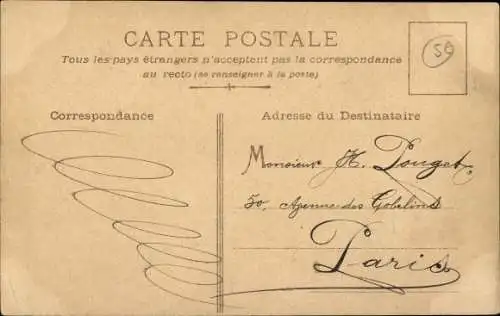 CARTE POSTALE
Tous les pays étrangers n'acceptent pas la correspondance
au recto (se renseigner à la poste)
50
Correspondance
Adresse du Destinataire
Monsieur H. Pouget
50, Avenue des Gobelins
Paris